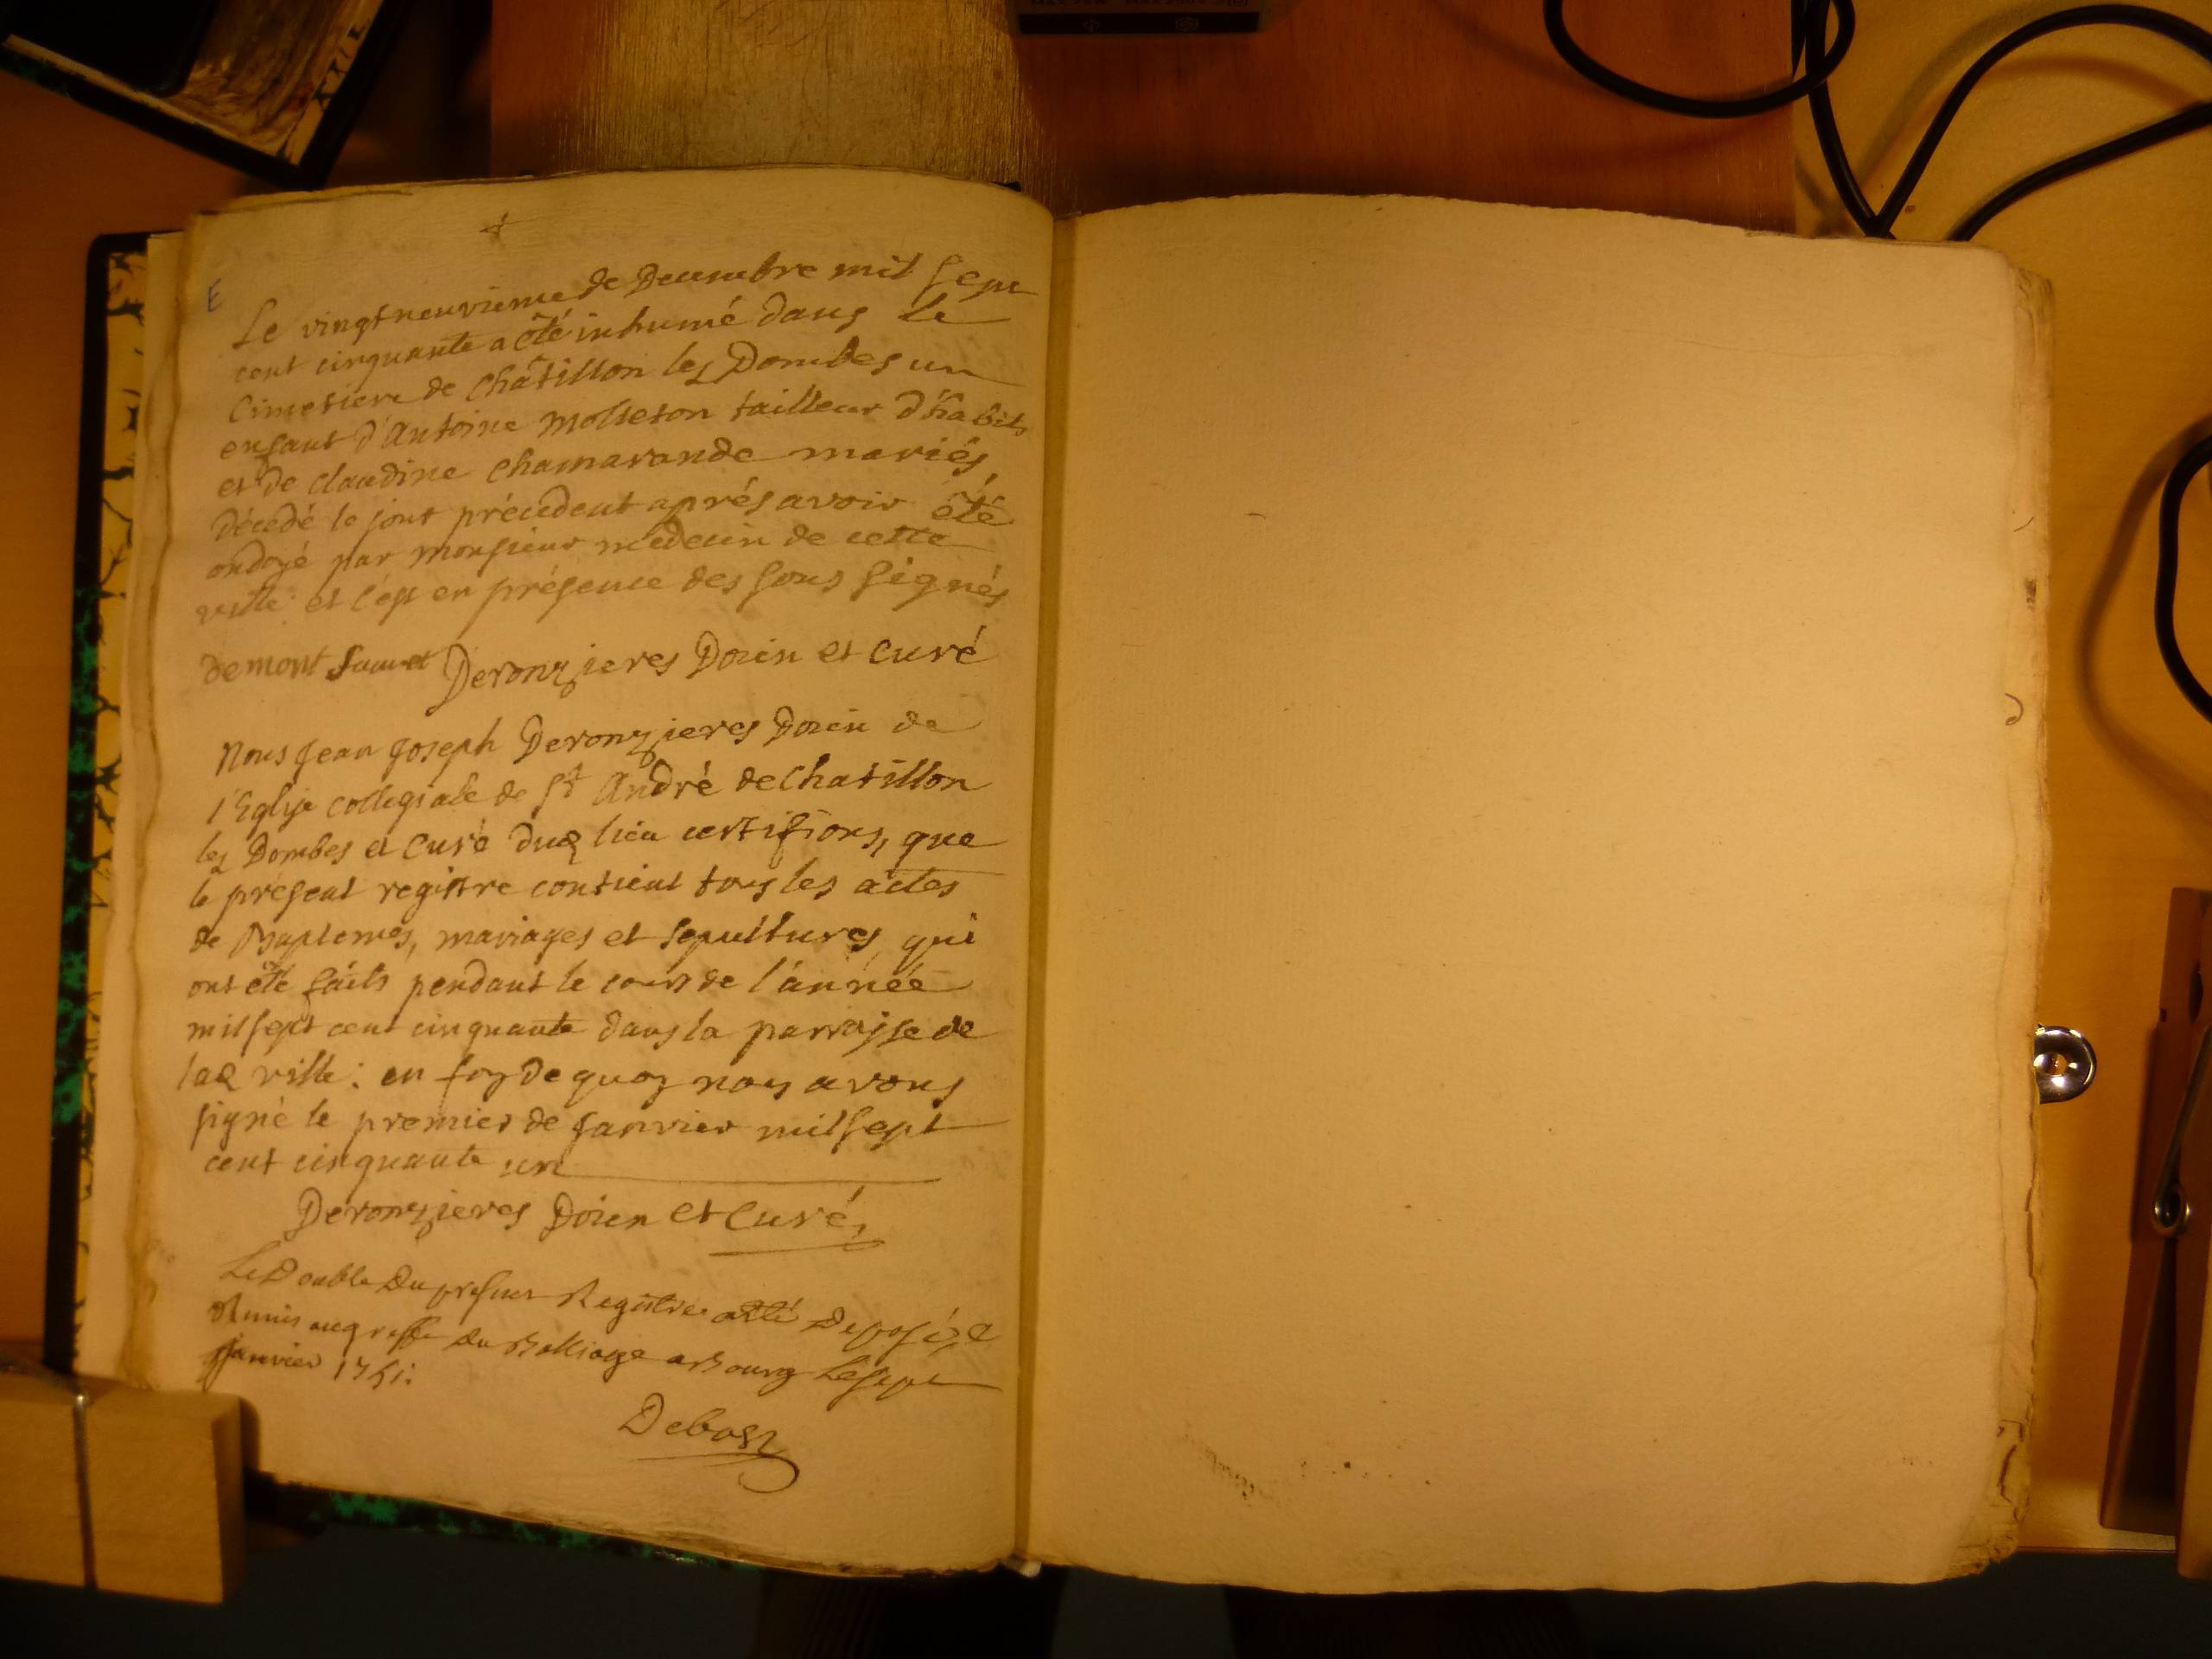 E
Le vingtneuvieme de Decembre mil sept
cent cinquante a été inhumé dans le
Cimetiere de Châtillon les Dombes un
enfant d'Antoine Molleton tailleur d'habits
et de claudine Chamarande mariés,
Décédé le jour précédent aprés avoir été
ondoyé par monsieur médecin de cette
ville: et c'est en présence des sous signés
Demont Deronzieres Doien et Curé
Nous Jean Joseph Deronzieres Doien de
l'Eglise collegiale de St André de Chatillon
les Dombes et Curé dud lieu certifions, que
le présent registre contient tous les actes
de Baptemes, mariages et sepultures, qui
ont été faits pendant le cours de l'année
mil sept cent cinquante dans la parroisse de
lad ville: en foy de quoy nous avons
signé le premier de Janvier mil sept
cent cinquante un
Deronzieres Doien et Curé,
Le Double Du present Registre a eté Deposé, et
Remis au greffe du Balliage a Bourg Le sept
Janvier 1751.
Debost